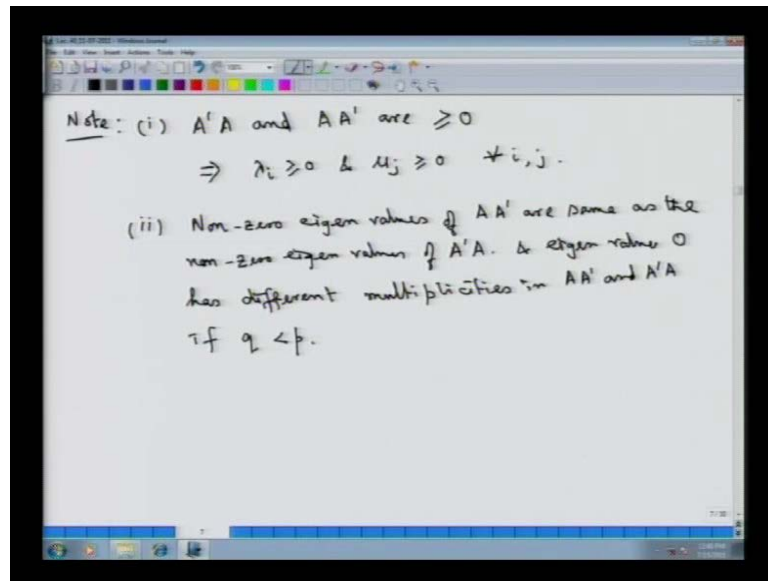 Note: (i) A'A and AA' are ≥ 0
⇒ λi ≥ 0 & μj ≥ 0 ∀ i, j.
(ii) Non-zero eigen values of AA' are same as the
non-zero eigen values of A'A. & eigen value 0
has different multiplicities in AA' and A'A
if q < p.